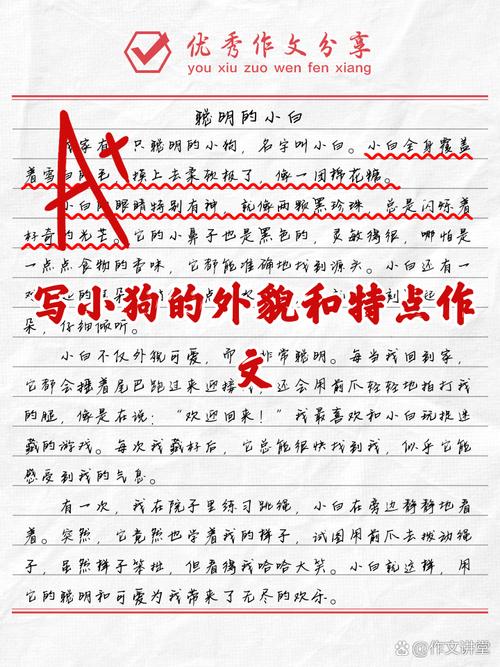 优秀作文分享
you xiu zuo wen fen xiang
聪明的小白
家有 只聪明的小狗,名字叫小白。小白全身覆盖
着雪白的毛,摸上去柔软极了,像一团棉花糖。
小白的眼睛特别有神,就像两颗黑珍珠,总是闪烁着
好奇的光芒。它的小鼻子也是黑色的,灵敏得很,哪怕是
一点点食物的香味,它都能准确地找到源头。小白还有一
A+
写小狗的外貌和特点作
文
朵,仔细倾听。
小白不仅外貌可爱,而 非常聪明。每当我回到家,
它都会摇着尾巴跑过来迎接 还会用前爪轻轻地拍打我
的腿,像是在说:“欢迎回来!”我最喜欢和小白玩捉迷
藏的游戏。每次我藏好后,它总能很快找到我,似乎它能
感受到我的气息。
有一次,我在院子里练习跳绳,小白在旁边静静地看
着。突然,它竟然也学着我的样子,试图用前爪去拨动绳
子,虽然样子笨拙,但看得我哈哈大笑。小白就这样,用
它的聪明和可爱为我带来了无尽的欢乐。
@作文讲堂